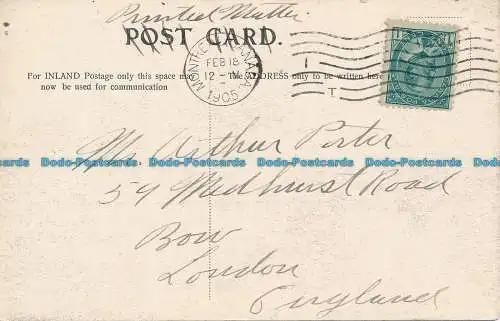 Printed Matter
POST CARD.
MONTRE CANADA
FEB 18
12 -
1905
T
For INLAND Postage only this space may
now be used for communication
The ADDRESS only to be written here
Mr Arthur Porter
54 Medhurst Road
Bow
London
England
Dodo-Postcards.com Dodo-Postcards.com Dodo-Postcards.com Dodo-Postcards.com